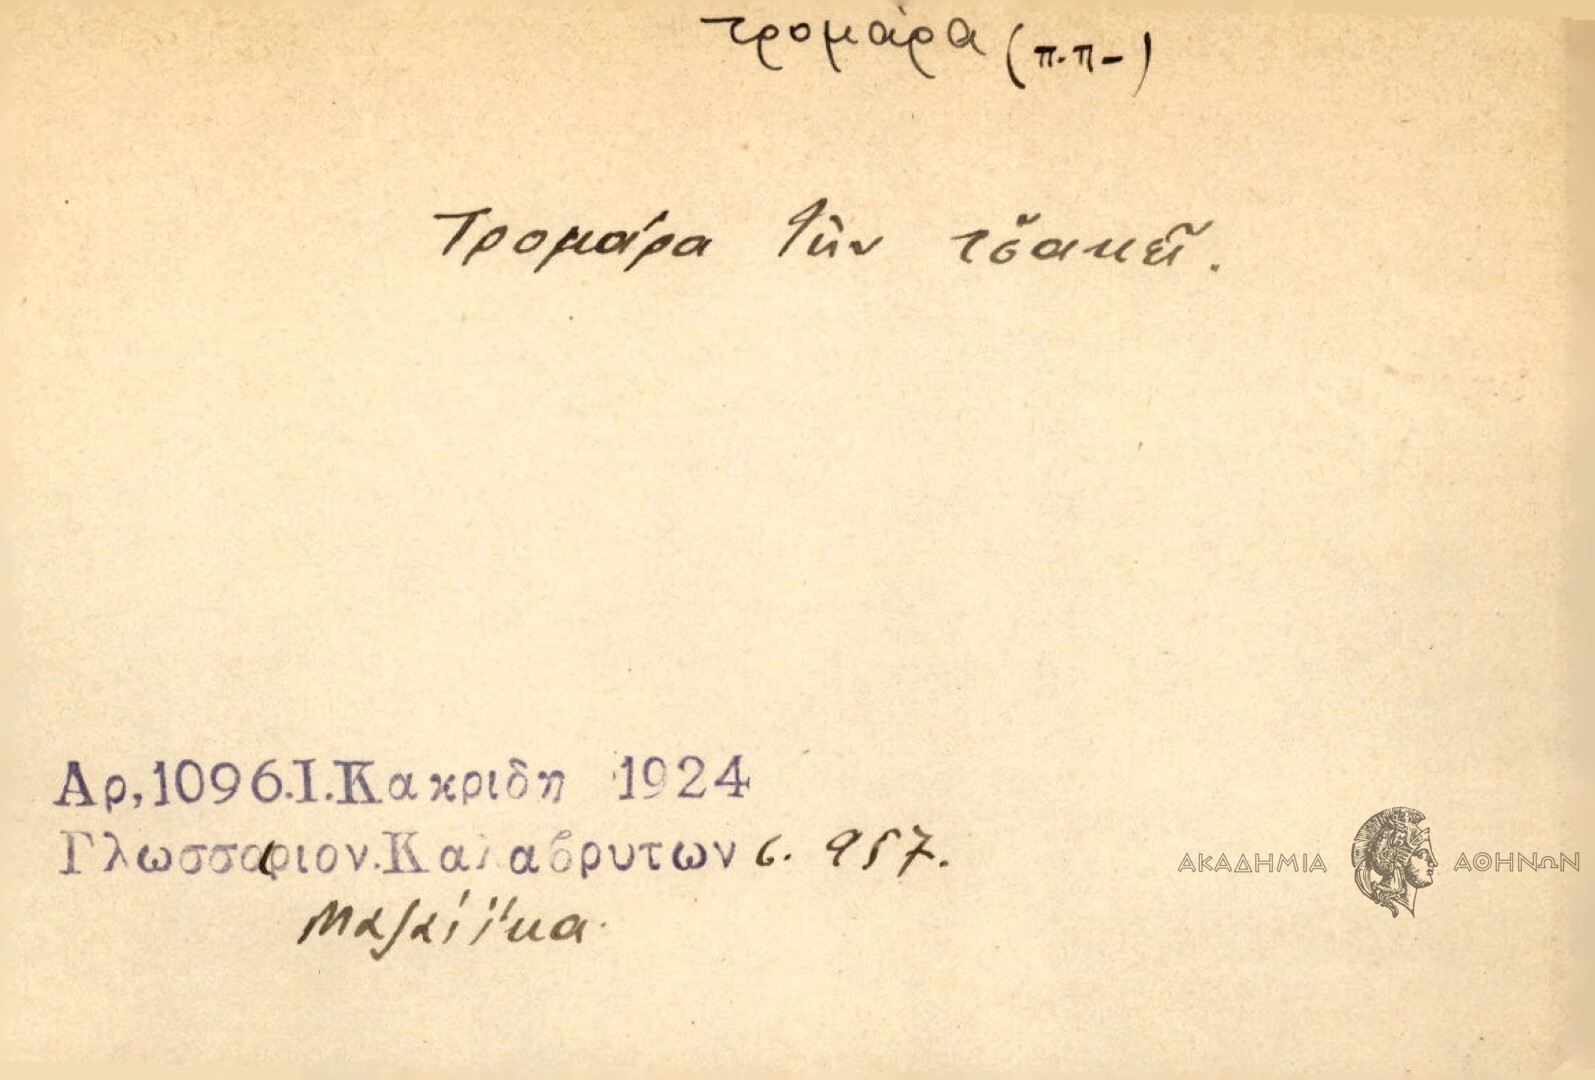 τρομάρα (π.π-)
Τρομάρα τὴν τσ̌ακεῖ.
Αρ,1096.Ι.Κακριδη 1924
Γλωσσαριον.Καλαβρυτων σ. 957.
Μαζαίϊκα.
ΑΚΑΔΗΜΙΑ ΑΘΗΝΩΝ